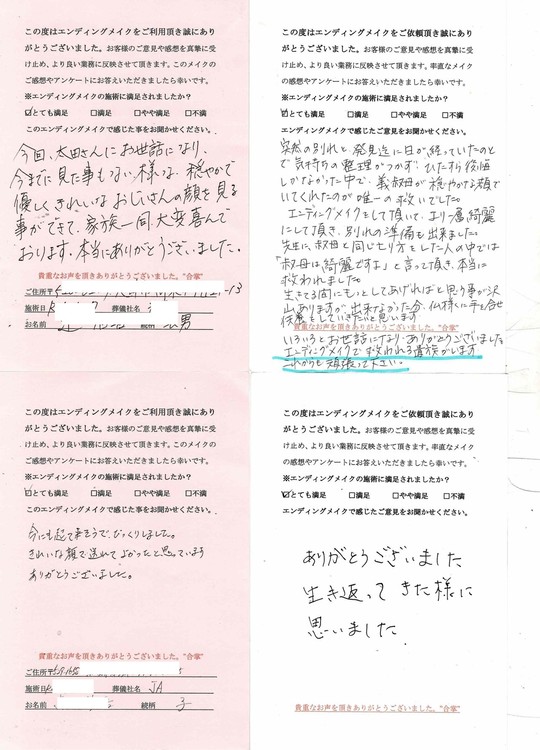 この度はエンディングメイクをご利用頂き誠にあり
がとうございました。お客様のご意見や感想を真摯に受
け止め、より良い業務に反映させて頂きます。このメイクの
ご感想やアンケートにお答えいただきましたら幸いです。
※エンディングメイクの施術に満足されましたか？
☑とても満足 □満足 □やや満足 □不満
このエンディングメイクで感じた事をお聞かせください。
今回、太田さんにお世話になり、
今までに見た事もない様な、穏やかで
優しく、きれいなおじいさんの顔を見る
事ができて、家族一同、大変喜んで
おります。本当にありがとうございました。
貴重なお声を頂きありがとうございました。"合掌"
ご住所〒
-13
施術日 葬儀社名
お名前 男
この度はエンディングメイクをご依頼頂き誠にあり
がとうございました。お客様のご意見や感想を真摯に受
け止め、より良い業務に反映させて頂きます。率直なメイク
の感想やアンケートにお答えいただきましたら幸いです。
※エンディングメイクの施術に満足されましたか？
☑とても満足 □満足 □やや満足 □不満
エンディングメイクで感じたご意見をお聞かせください。
突然の別れと発見迄に日が経っていたのと
で気持ちの整理がつかず、ひたすら後悔
しかなかった中で、義叔母が穏やかな顔で
いてくれたのが唯一の救いでした。
エンディングメイクをして頂いて、より一層綺麗
にして頂き、お別れの準備も出来ました。
先生に、叔母と同じ亡り方をした人の中では
「叔母は綺麗ですよ」と言って頂き、本当に
救われました。
生きてる間にもっとしてあげればと思う事が沢
山ありますが、出来なかった分、仏様に手を合せ
供養もしていきたいと思います
貴重なお声を頂きありがとうございました。"合掌"
いろいろとお世話になり、ありがとうございました
エンディングメイクで救われる遺族がいます
これからも頑張って下さい。
この度はエンディングメイクをご利用頂き誠にあり
がとうございました。お客様のご意見や感想を真摯に受
け止め、より良い業務に反映させて頂きます。このメイクの
ご感想やアンケートにお答えいただきましたら幸いです。
※エンディングメイクの施術に満足されましたか？
☑とても満足 □満足 □やや満足 □不満
このエンディングメイクで感じた事をお聞かせください。
今にも起て来そうで、びっくりしました。
きれいな顔で送れてよかったと思っています
ありがとうございました。
貴重なお声を頂きありがとうございました。"合掌"
ご住所〒
施術日 葬儀社名 JA
お名前 続柄 子
この度はエンディングメイクをご依頼頂き誠にあり
がとうございました。お客様のご意見や感想を真摯に受
け止め、より良い業務に反映させて頂きます。率直なメイク
の感想やアンケートにお答えいただきましたら幸いです。
※エンディングメイクの施術に満足されましたか？
☑とても満足 □満足 □やや満足 □不満
エンディングメイクで感じたご意見をお聞かせください。
ありがとうございました
生き返って きた様に
思いました
貴重なお声を頂きありがとうございました。"合掌"